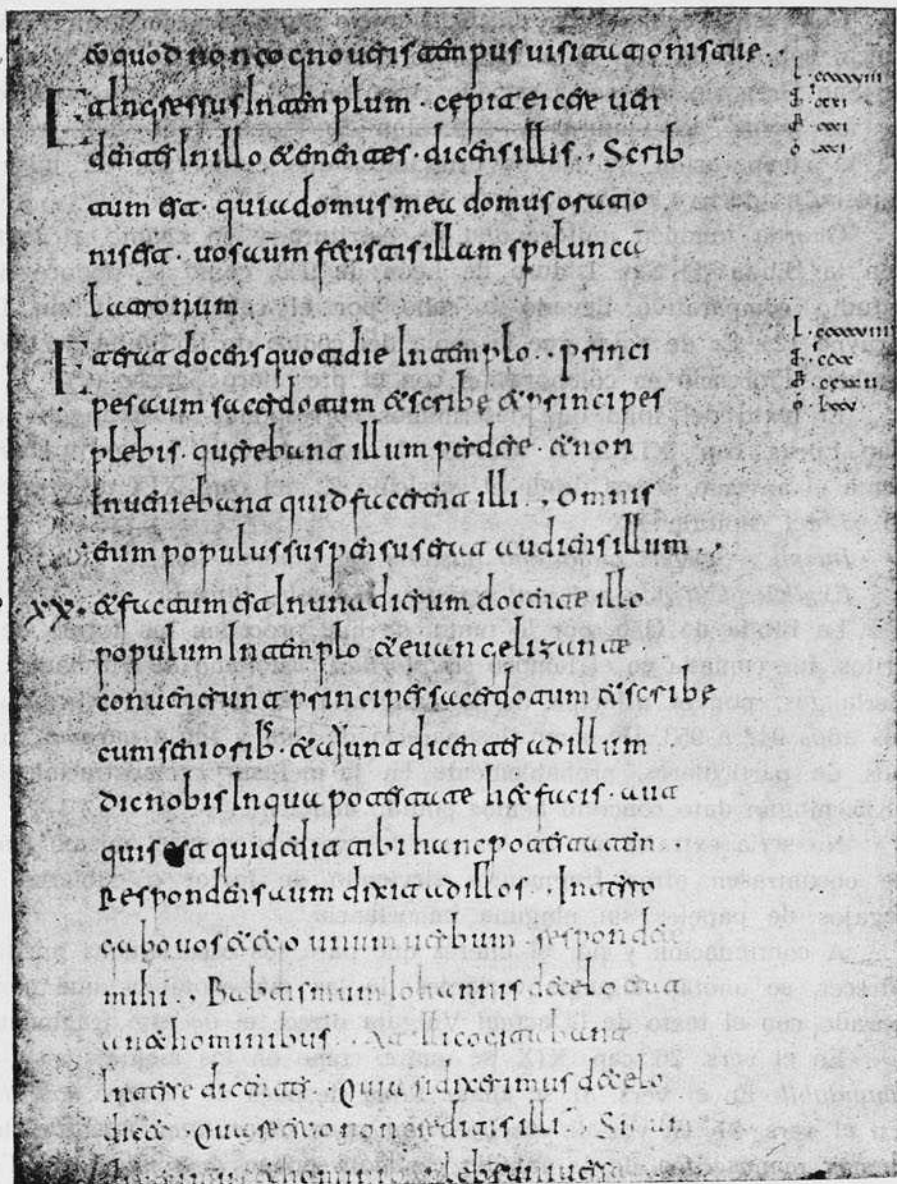 eo quod non cognoveris tempus visitationis tue.
Et ingressus in templum. cepit eicere ven
dentes in illo et ementes. dicens illis. Scrib
tum est. quia domus mea domus oratio
nis est. vos autem fecistis illam speluncā
latronum
Et erat docens quotidie in templo. princi
pes autem sacerdotum et scribe et principes
plebis. querebant illum perdere. et non
inveniebant quid facerent illi. Omnis
enim populus suspensus erat audiens illum.
XX. et factum est in una dierum docente illo
populum in templo et evangelizante.
convenerunt principes sacerdotum et scribe
cum seniorib. et aiunt dicentes ad illum
dic nobis in qua potestate hec facis. aut
quis est qui dedit tibi hanc potestatem.
Respondens autem dixit ad illos. Interro
gabo vos et ego unum verbum. respondete
mihi. Babtismum Iohannis de celo erat
an ex hominibus. At illi cogitabant
inter se dicentes. Quia si dixerimus de celo
dicet. Quare ergo non credidistis illi. Si